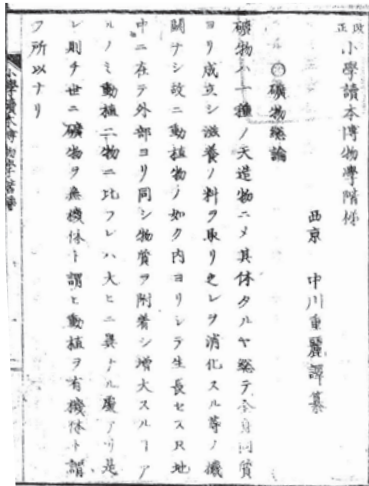 改正 小學讀本博物學階梯
西京 中川重麗譯纂
○礦物總論
礦物ハ一種ノ天造物ニメ其体タルヤ總テ全身同質
ヨリ成立シ滋養ノ料ヲ取リ之レヲ消化スル等ノ機
關ナシ故ニ動植物ノ如ク内ヨリシテ生長セス只地
中ニ在テ外部ヨリ同シ物質ヲ附着シ增大スルヿア
ルノミ動植二物ニ比フレハ大ヒニ異ナル處アリ是
レ則チ世ニ礦物ヲ無機体ト謂ヒ動植ヲ有機体ト謂
フ所以ナリ
小學讀本博物學階梯